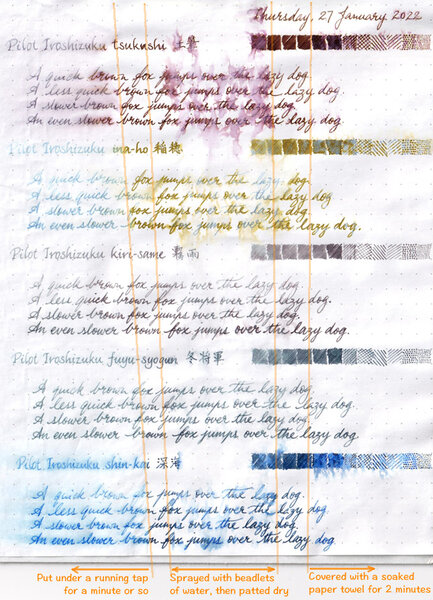 Thursday, 27 January 2022
Pilot Iroshizuku tsukushi 土筆
A quick brown fox jumps over the lazy dog.
A less quick brown fox jumps over the lazy dog.
A slower brown fox jumps over the lazy dog.
An even slower brown fox jumps over the lazy dog.
Pilot Iroshizuku ina-ho 稲穂
A quick brown fox jumps over the lazy dog.
A less quick brown fox jumps over the lazy dog.
A slower brown fox jumps over the lazy dog.
An even slower brown fox jumps over the lazy dog.
Pilot Iroshizuku kiri-same 霧雨
A quick brown fox jumps over the lazy dog.
A less quick brown fox jumps over the lazy dog.
A slower brown fox jumps over the lazy dog.
An even slower brown fox jumps over the lazy dog.
Pilot Iroshizuku fuyu-syogun 冬将軍
A quick brown fox jumps over the lazy dog.
A less quick brown fox jumps over the lazy dog.
A slower brown fox jumps over the lazy dog.
An even slower brown fox jumps over the lazy dog
Pilot Iroshizuku shin-kai 深海
A quick brown fox jumps over the lazy dog.
A less quick brown fox jumps over the lazy dog.
A slower brown fox jumps over the lazy dog.
An even slower brown fox jumps over the lazy dog.
Put under a running tap
for a minute or so
Sprayed with beadlets
of water, then patted dry
Covered with a soaked
paper towel for 2 minutes